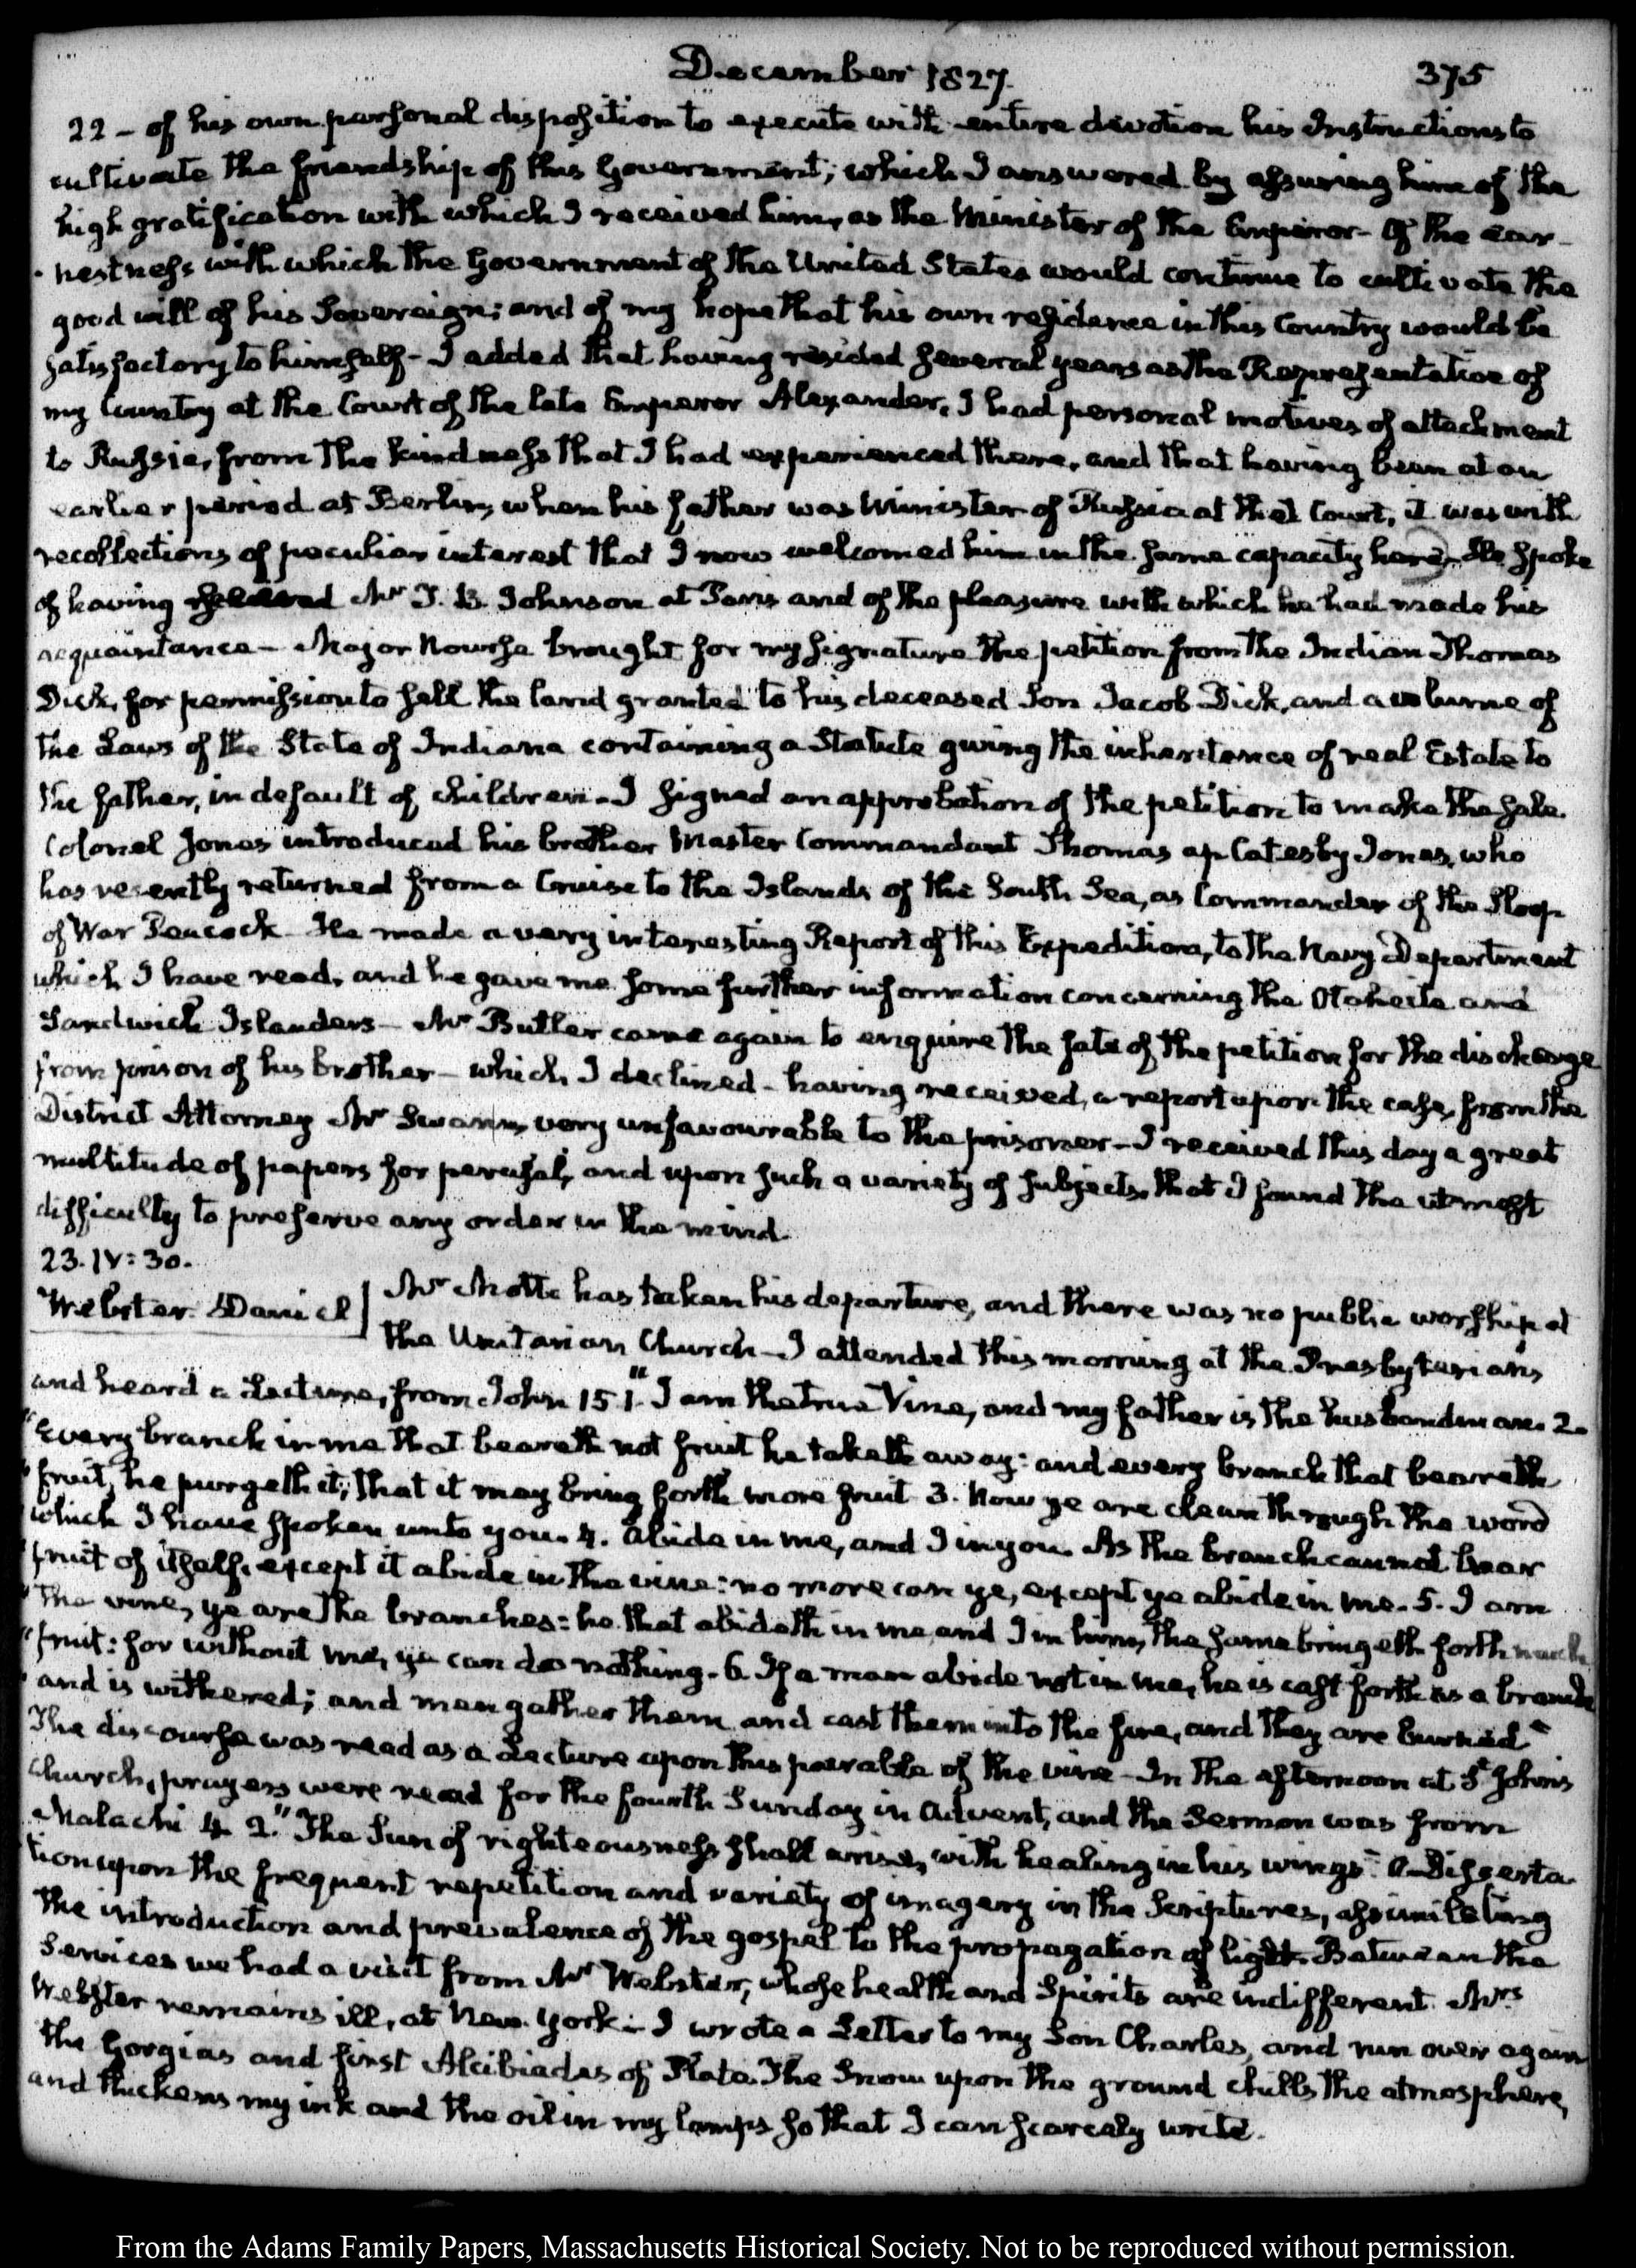 December 1827.
375
22 – of his own personal disposition to execute with entire devotion his Instructions to
cultivate the friendship of this Government; which I answered by assuring him of the
high gratification with which I received him, as the Minister of the Emperor – Of the ear-
nestness with which the Government of the United States would continue to cultivate the
good will of his Sovereign; and of my hope that his own residence in this Country would be
satisfactory to himself – I added that having resided several years as the Representative of
my Country at the Court of the late Emperor Alexander, I had personal motives of attachment
to Russia, from the kindness that I had experienced there, and that having been at an
earlier period at Berlin, when his father was Minister of Russia at that Court, it was with
recollections of peculiar interest that I now welcomed him in the same capacity here – He spoke
of having Mr J. B. Johnson at Paris and of the pleasure with which he had made his
acquaintance – Major Nourse brought for my signature the petition from the Indian Thomas
Dick, for permission to sell the land granted to his deceased Son Jacob Dick, and a volume of
the Laws of the State of Indiana containing a Statute giving the inheritance of real Estate to
the father, in default of children – I signed an approbation of the petition to make the sale.
Colonel Jones introduced his brother Master Commandant Thomas ap Catesby Jones, who
has recently returned from a Cruise to the Islands of the South Sea, as Commander of the Sloop
of War Peacock – He made a very interesting Report of this Expedition, to the Navy Department
which I have read, and he gave me some further information concerning the Otaheite and
Sandwich Islanders – Mr Butler came again to enquire the fate of the petition for the discharge
from prison of his brother – which I declined – having received, a report upon the case, from the
District Attorney Mr Swann, very unfavourable to the prisoner – I received this day a great
multitude of papers for perusal, and upon such a variety of subjects, that I found the utmost
difficulty to preserve any order in the mind.
23. IV: 30.
Webster Daniel
Mr Motte has taken his departure, and there was no public worship at
the Unitarian Church – I attended this morning at the Presbyterian,
and heard a Lecture, from John 15 1. "I am the true Vine, and my father is the husbandman. 2.
"Every branch in me that beareth not fruit he taketh away: and every branch that beareth
"fruit, he purgeth it, that it may bring forth more fruit 3. Now ye are clean through the word
which I have spoken unto you. 4. Abide in me, and I in you. As the branch cannot bear
"fruit of itself, except it abide in the vine: no more can ye, except ye abide in me. 5. I am
"the vine, ye are the branches: he that abideth in me, and I in him, the same bringeth forth much
"fruit: for without me, ye can do nothing. 6 If a man abide not in me, he is cast forth as a branch
"and is withered; and men gather them and cast them into the fire, and they are burned"
The discourse was read as a Lecture upon this parable of the vine – In the afternoon at St. John's
Church, prayers were read for the fourth Sunday in Advent, and the Sermon was from
Malachi 4. 2. "The Sun of righteousness shall arise, with healing in his wings" A disserta-
tion upon the frequent repetition and variety of imagery in the Scriptures, assimilating
the introduction and prevalence of the gospel to the propagation of light. Between the
Services we had a visit from Mr Webster, whose health and Spirits are indifferent. Mrs
Webster remains ill, at New-York – I wrote a Letter to my Son Charles, and run over again
the Gorgias and first Alcibiades of Plato. The Snow upon the ground chills the atmosphere,
and thickens my ink and the oil in my lamps so that I can scarcely write.
From the Adams Family Papers, Massachusetts Historical Society. Not to be reproduced without permission.